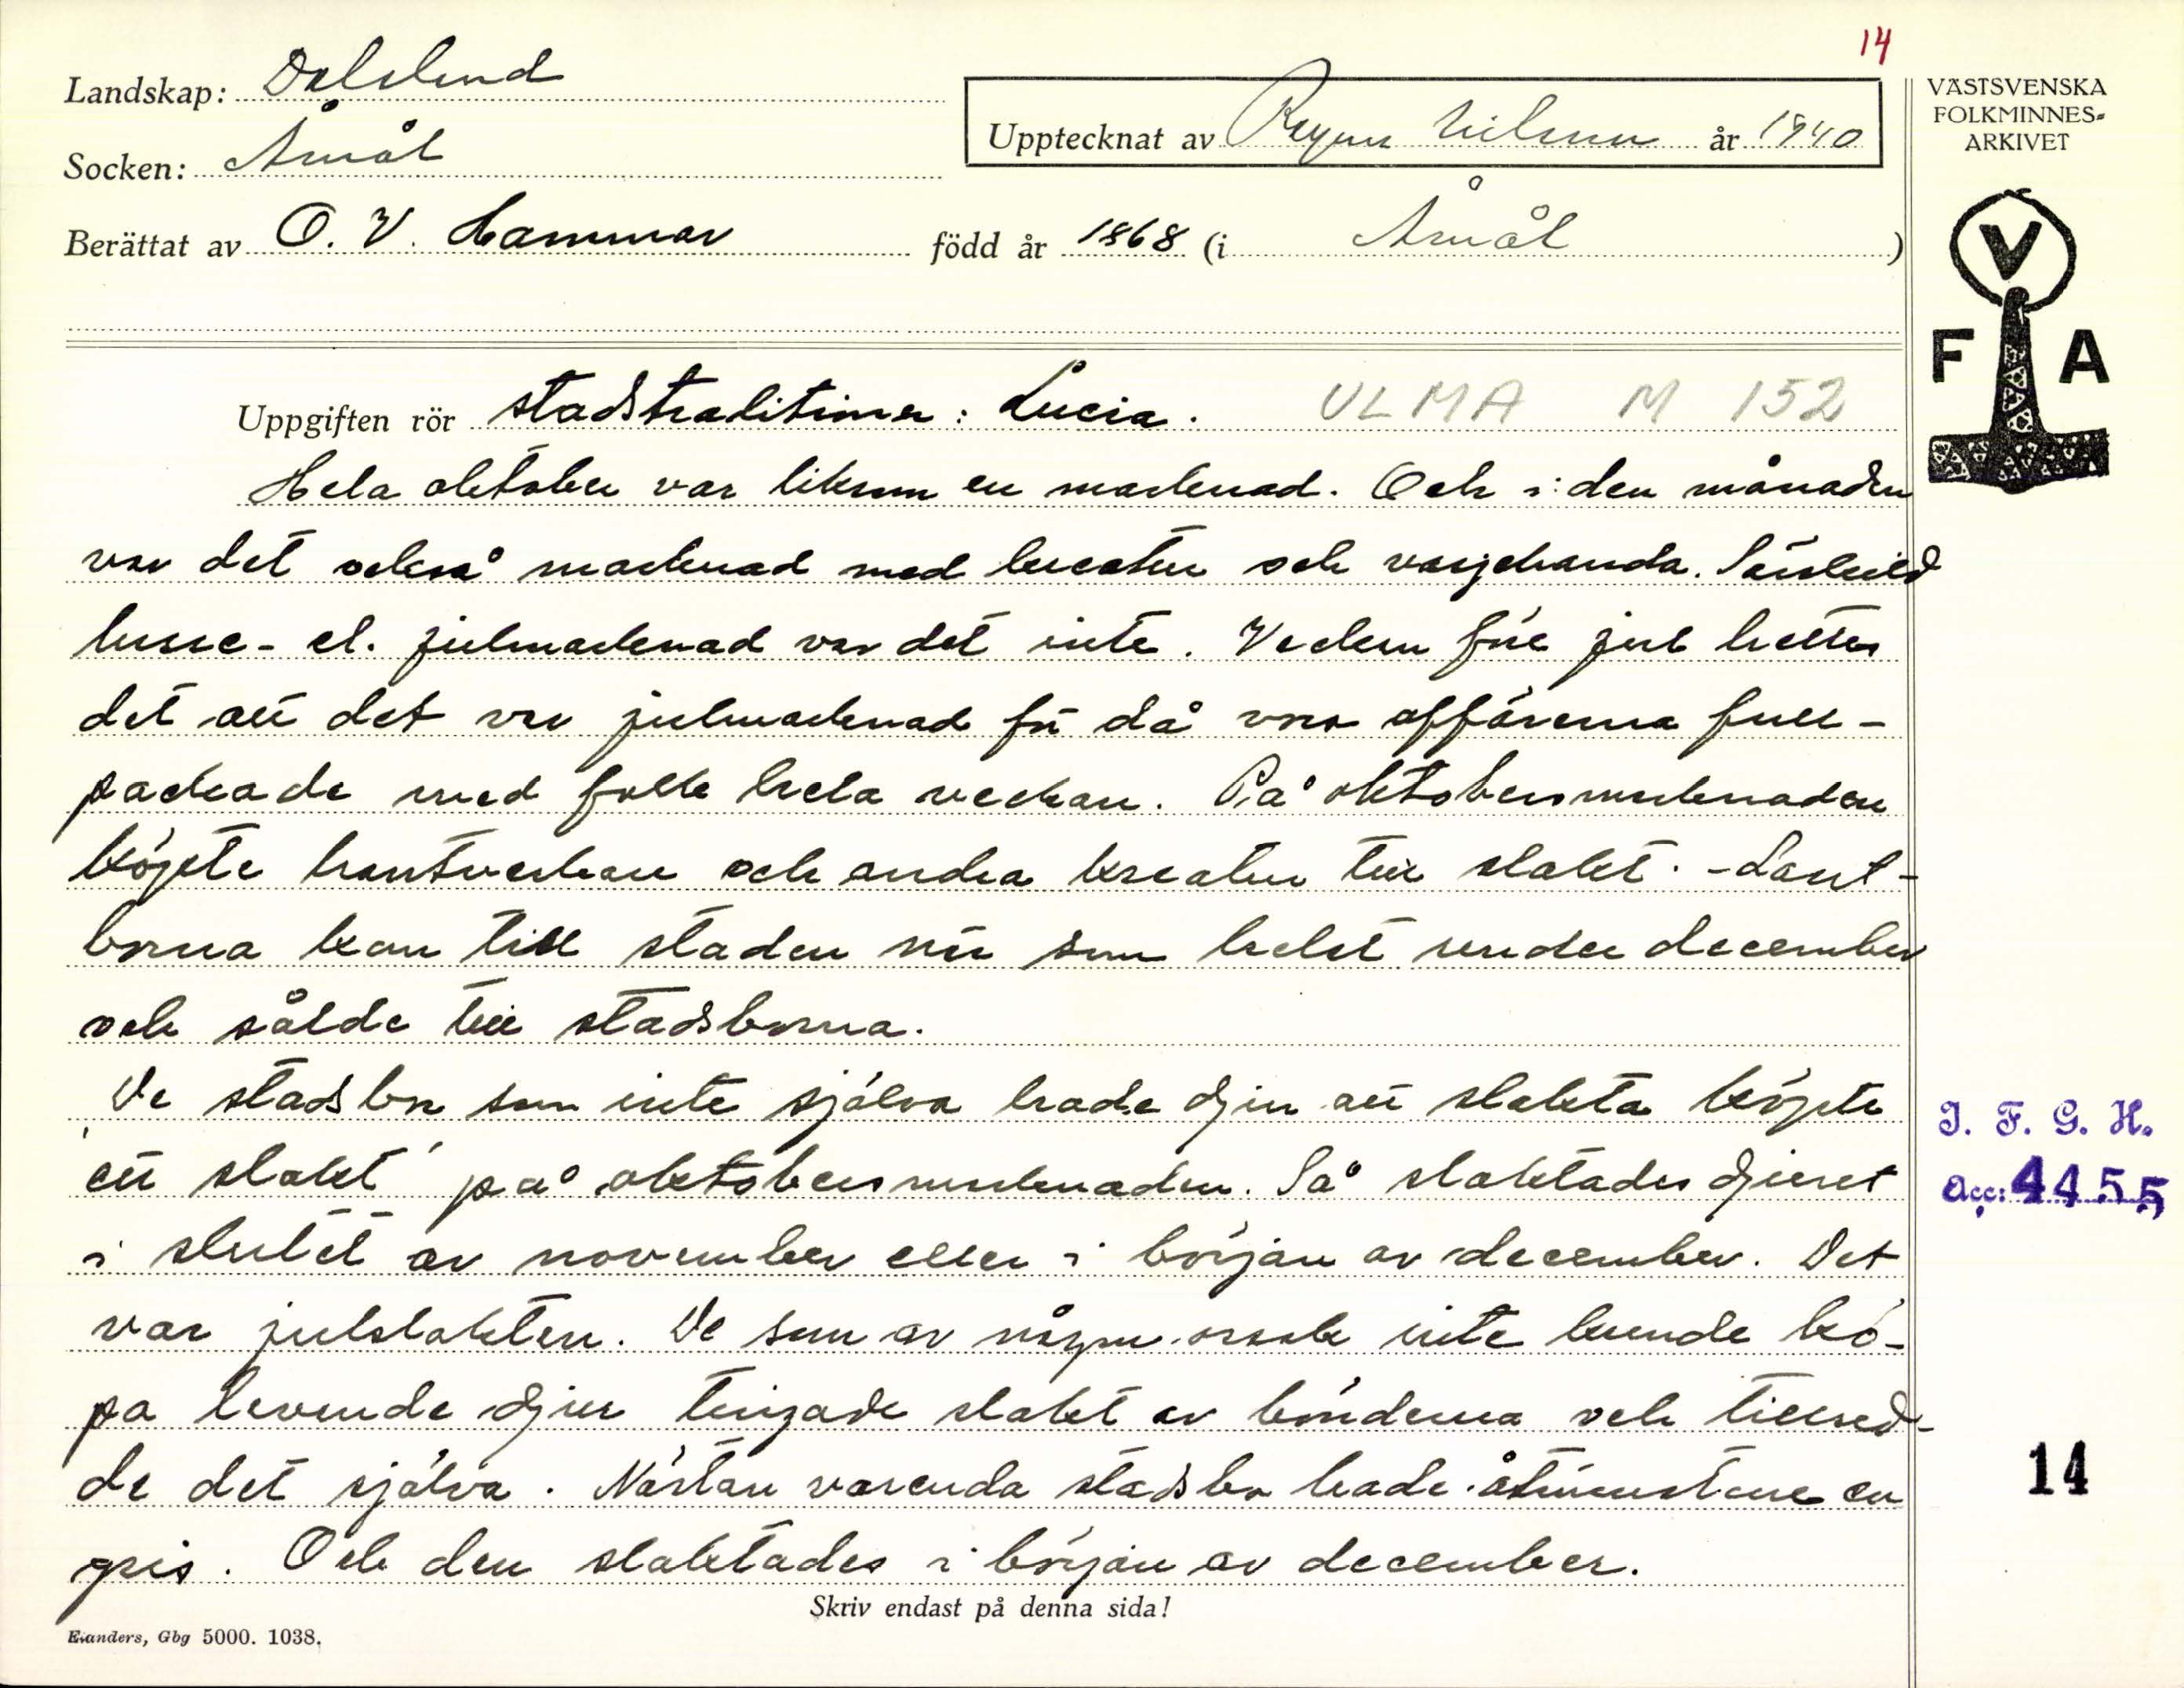 14
Landskap: Dalsland
Upptecknat av Ragnar Nilsson år 1940
VÄSTSVENSKA
FOLKMINNES-
ARKIVET
Socken: Åmål
Berättat av O. V. Hammar född år 1868 (i Åmål)
V
F A
Uppgiften rör stadstraditioner: Lucia. ULMA M 152
Hela oktober var liksom en marknad. Och i den månaden
var det också marknad med kreatur och varjehanda. Särskild
lusse- el. julmarknad var det inte. Veckan före jul hettes
det att det var julmarknad för då voro affärerna full-
packade med folk hela veckan. På oktobersmarknaden
köpte hantverkare och andra kreatur till slakt. - Lant-
borna kom till staden när som helst under december
och sålde till stadsborna.
De stadsbor som inte själva hade djur att slakta köpte
'ett slakt' på oktobersmarknaden. Så slaktades djuret
i slutet av november eller i början av december. Det
var julslakten. De som av någon orsak inte kunde kö-
pa levende djur tingade slakt av bönderna och tillred-
de det själva. Nästan varenda stadsbo hade åtminstone en
gris. Och den slaktades i början av december.
I. F. G. H.
Acc: 4455
14
Skriv endast på denna sida!
Elanders, Gbg 5000. 1038.